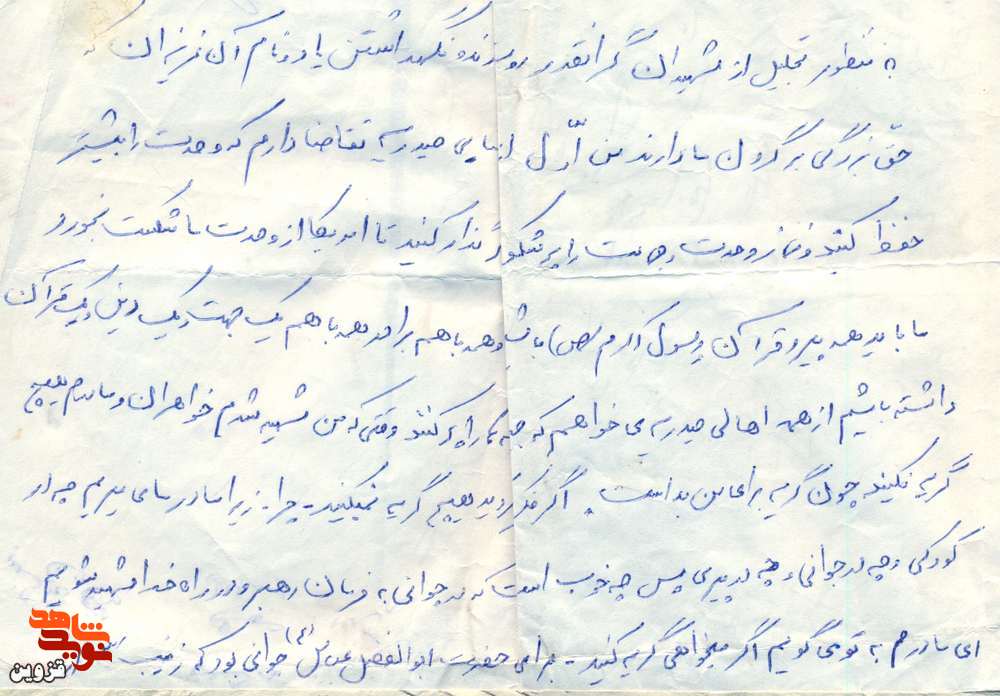 به منظور تجلیل از شهیدان گرانقدر و زنده نگهداشتن یاد و نام آن عزیزان که
حق بزرگی بر گردن ما دارند من اول از اهالی حیدریه تقاضا دارم که وحدت را بیشتر
حفظ کنید و نماز وحدت جماعت را پرشکوهتر برگذار کنید تا امریکا از وحدت ما شکست بخورد و
ما باید همه پیرو قرآن و رسول اکرم (ص) باشیم و همه با هم برادر همه با هم یک جهت یک دین یک قرآن
داشته باشیم از همه اهالی حیدریه می خواهم که جبهه ها را پر کنند وقتی که من شهید شدم خواهران و مادرم هیچ
گریه نکنید چون گریه برای من بد است. اگر فکر کردید هیچ گریه نمیکنید - چرا - زیرا ما در سامی میریم چه در
کودکی و چه در جوانی و چه در پیری پس چه خوب است که در جوانی به فرمان رهبر و در راه خدا شهید شویم
ای مادرم به تو می گویم اگر میخواهی گریه کنید - برای حضرت ابوالفضل عباس (ع) جوانی بود که زینب
نوید شاهد
قزوین